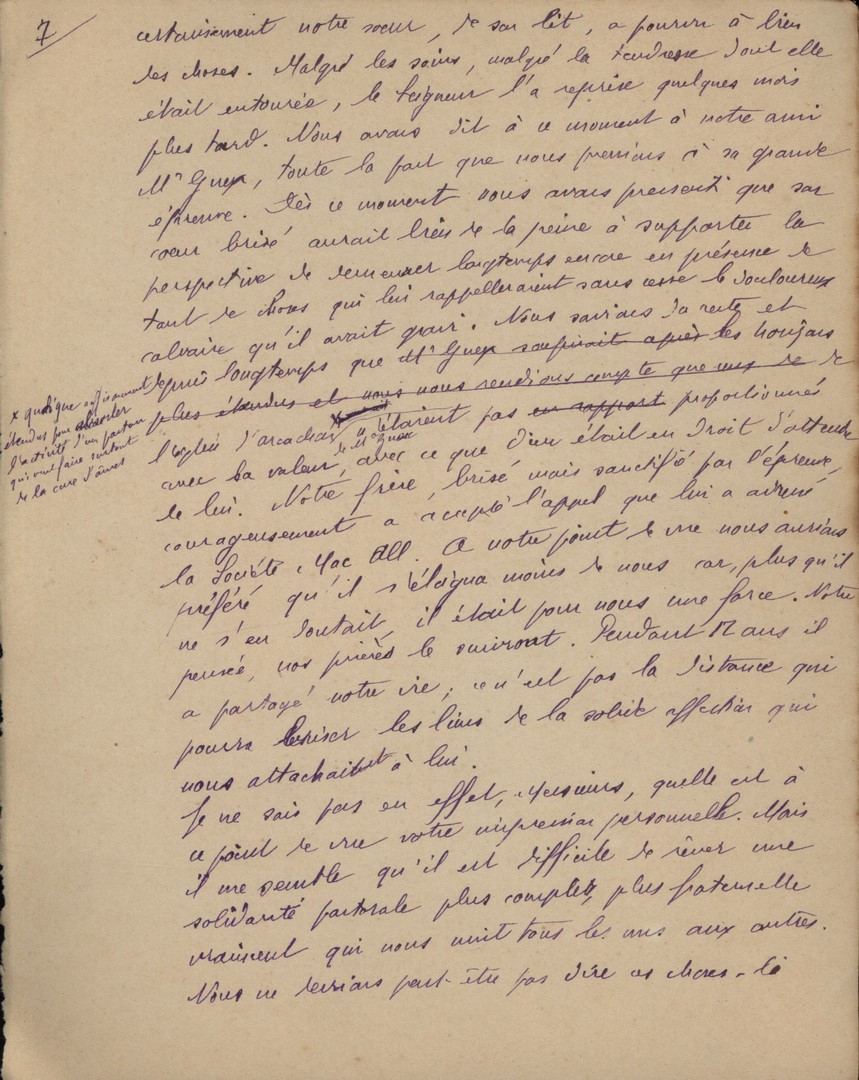 7
certainement notre sœur, de son lit, a pourvu à bien
des choses. Malgré les soins, malgré la tendresse dont elle
était entourée, le Seigneur l'a reprise quelques mois
plus tard. Nous avons dit à ce moment à notre ami
Mr Guex, toute la part que nous prenions à sa grande
épreuve. Dès ce moment nous avons pressenti que son
cœur brisé aurait bien de la peine à supporter la
perspective de demeurer longtemps encore en présence de
tant de choses qui lui rappelleraient sans cesse le douloureux
calvaire qu'il avait gravi. Nous savions du reste et
depuis longtemps que Mr Guex soupirait après les horizons
plus étendus et nous nous rendions compte que ceux de de
l'église d'Arcachon x n'étaient pas en rapport proportionnés
avec sa valeur, de Mr Guex avec ce que Dieu était en droit d'attendre
de lui. Notre frère, brisé mais sanctifié par l'épreuve,
courageusement a accepté l'appel que lui a adressé
la Société Mac All. A notre point de vue nous aurions
préféré qu'il s'éloigna moins de nous car, plus qu'il
ne s'en doutait, il était pour nous une force. Notre
pensée, nos prières le suivront. Pendant 12 ans il
a partagé notre vie; ce n'est pas la distance qui
pourra briser les liens de la solide affection qui
nous attachaient à lui.
Je ne sais pas en effet, Messieurs, quelle est à
ce point de vue votre impression personnelle. Mais
il me semble qu'il est difficile de rêver une
solidarité pastorale plus complète, plus fraternelle
vraiment qui nous unit tous les uns aux autres.
Nous ne devrions peut-être pas dire ces choses-là
x quoique suffisamment
étendus pour absorber
l'activité d'un pasteur
qui veut faire surtout
de la cure d'âmes